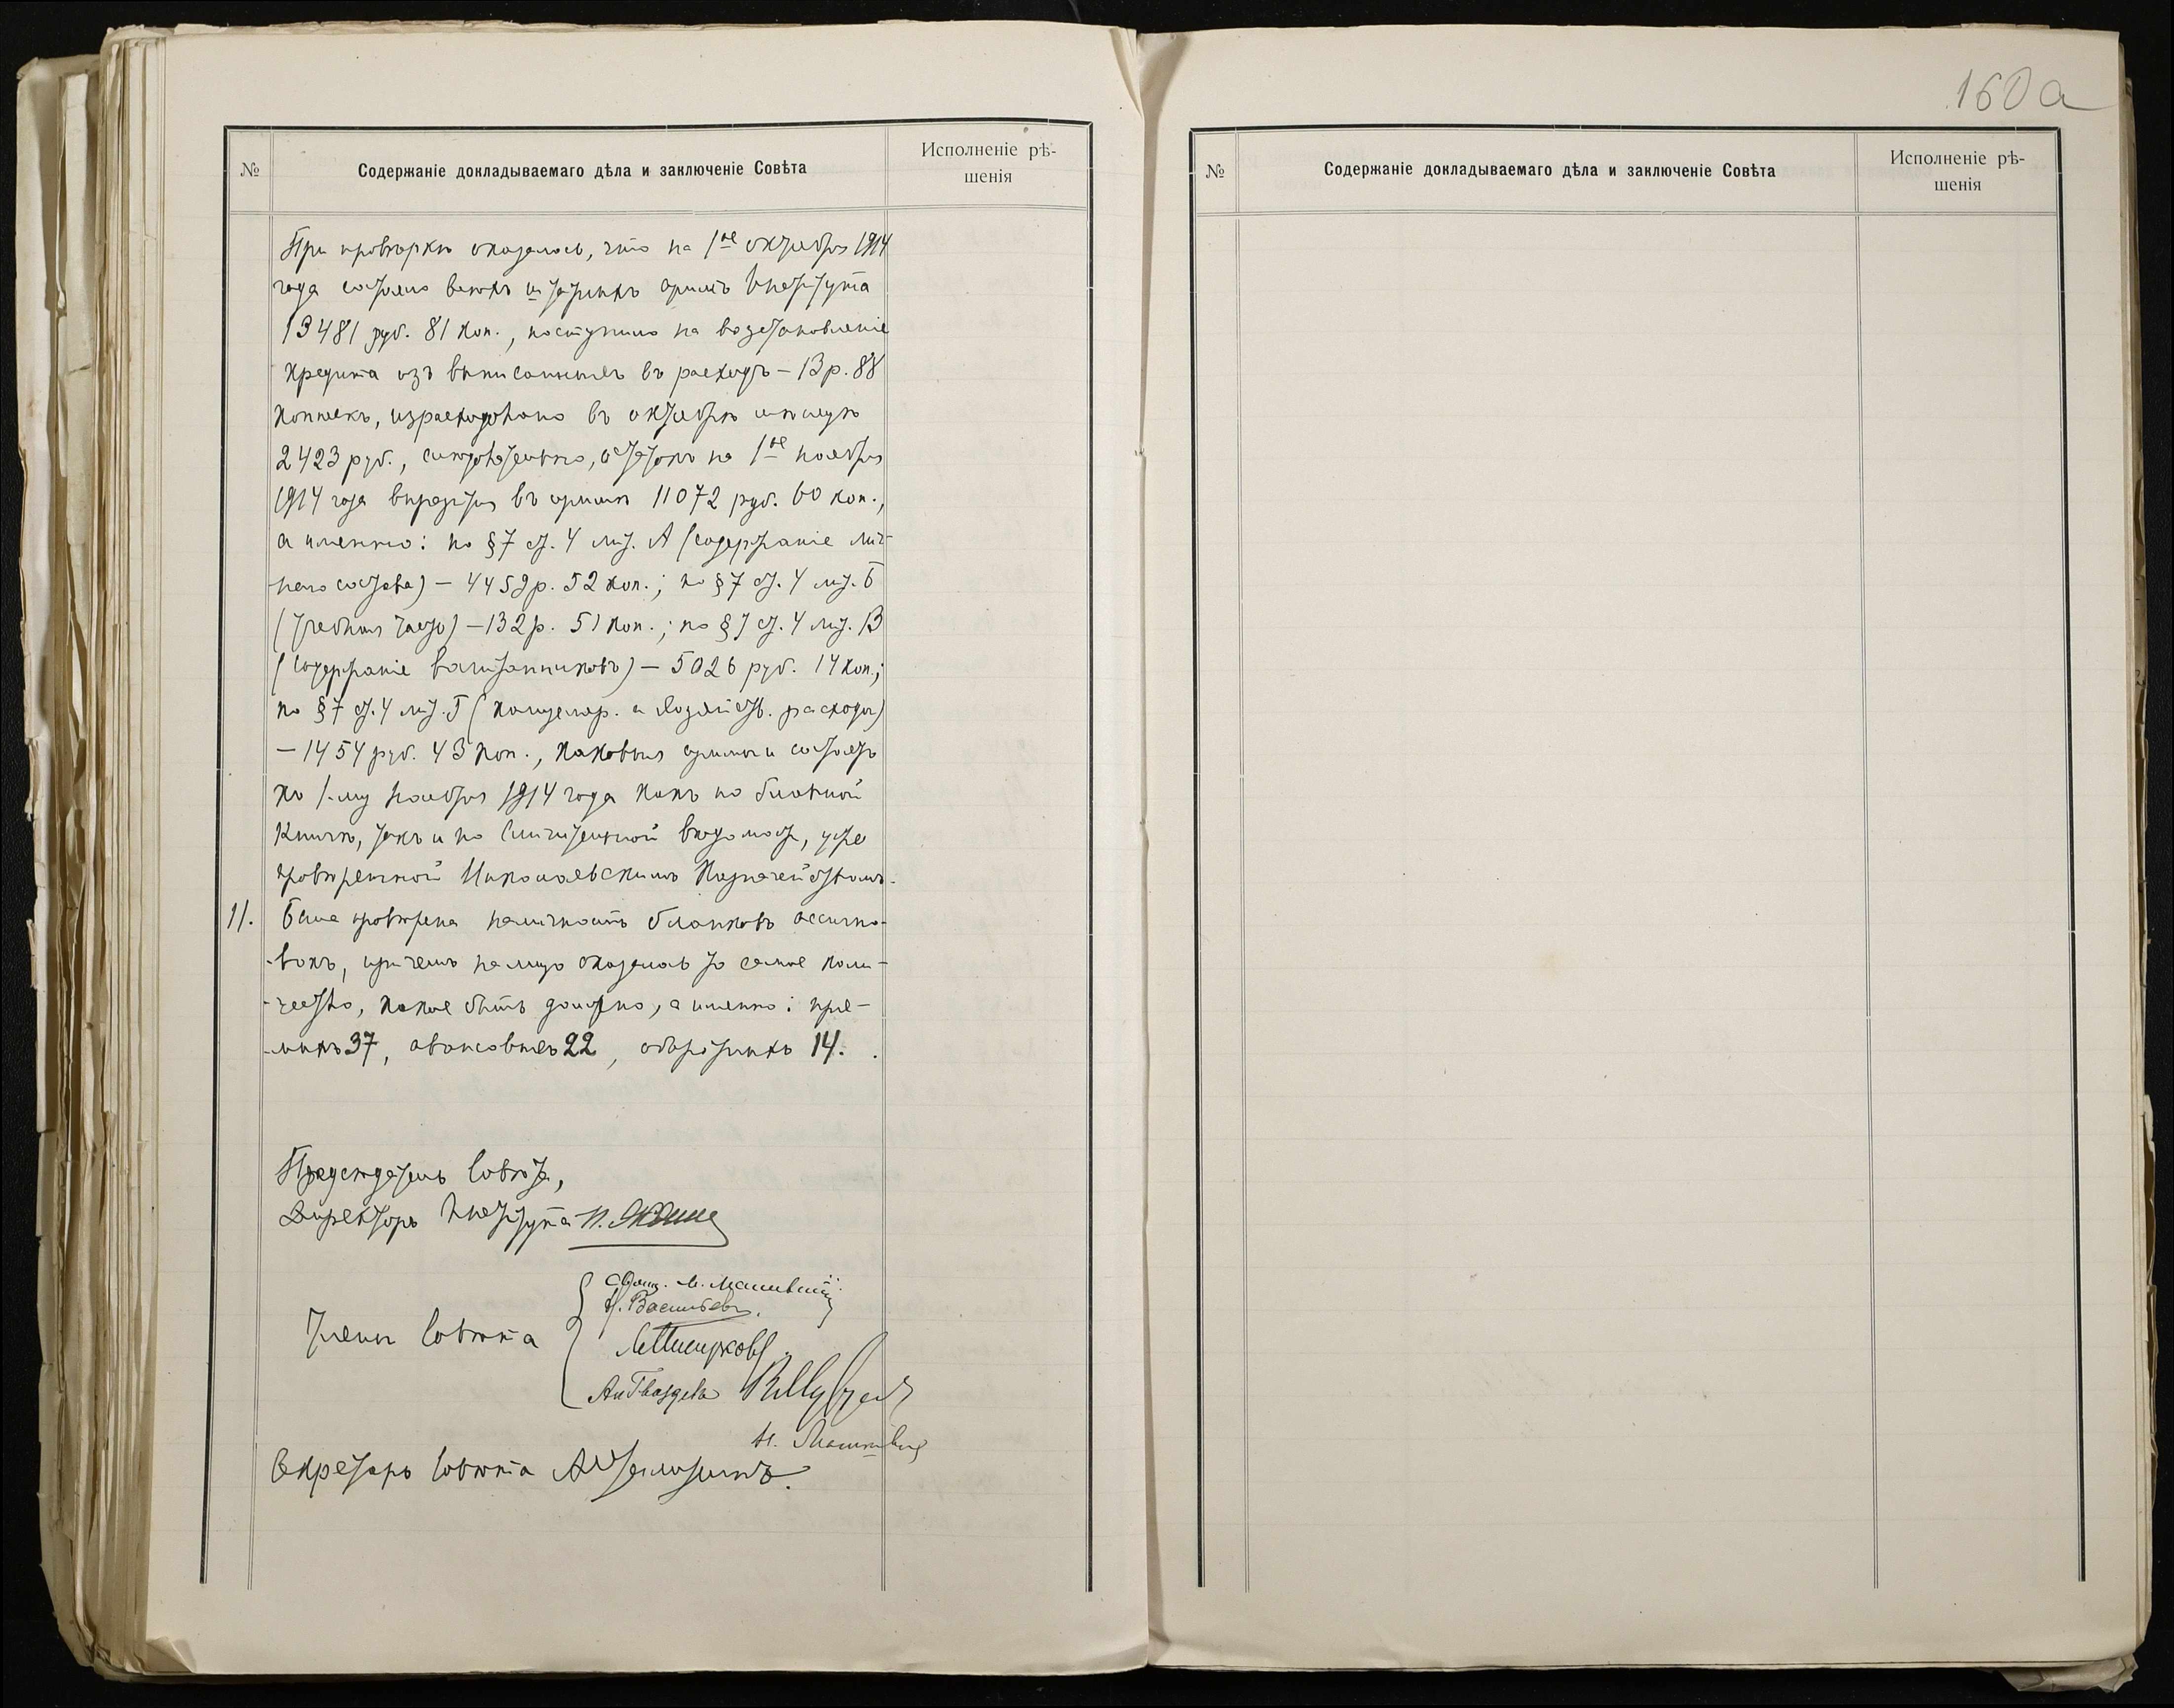 160а
№
Содержаніе докладываемаго дѣла и заключеніе Совѣта
Исполненіе рѣ-
шенія
При провѣркѣ оказалось, что на 1ое октября 1914
года состояло всѣхъ штатныхъ суммъ Института
13481 руб. 81 коп., поступило на возстановленіе
кредита изъ выписанныхъ въ расходъ – 13 р. 88
копѣекъ, израсходовано въ октябрѣ мѣсяцѣ
2423 руб., слѣдовательно, остатокъ на 1ое ноября
1914 года выразился въ суммѣ 11072 руб. 60 коп.,
а именно: по §7 ст. 4 лит. А (содержаніе лич-
наго состава) – 4459 р. 52 коп.; по §7 ст. 4 лит. Б
(учебная часть) – 132 р. 51 коп.; по §7 ст. 4 лит. В
(содержаніе воспитанниковъ) – 5026 руб. 14 коп.;
по §7 ст. 4 лит. Г (канцеляр. и хозяйств. расходы)
– 1454 руб. 43 коп., каковыя суммы и состоятъ
къ 1-му ноября 1914 года какъ по
книгѣ, такъ и по вѣдомости, уже
провѣренной Николаевскимъ Казначействомъ.
11. Была провѣрена наличность бланковъ ассигно-
-вокъ, причемъ на лицо оказалось то самое коли-
-чество, какое быть должно, а именно: пря-
-мыхъ 37, авансовыхъ 22, оборотныхъ 14.
Предсѣдатель Совѣта,
Директоръ Института
Члены Совѣта
Н. Васильевъ.
Секретарь Совѣта
№
Содержаніе докладываемаго дѣла и заключеніе Совѣта
Исполненіе рѣ-
шенія